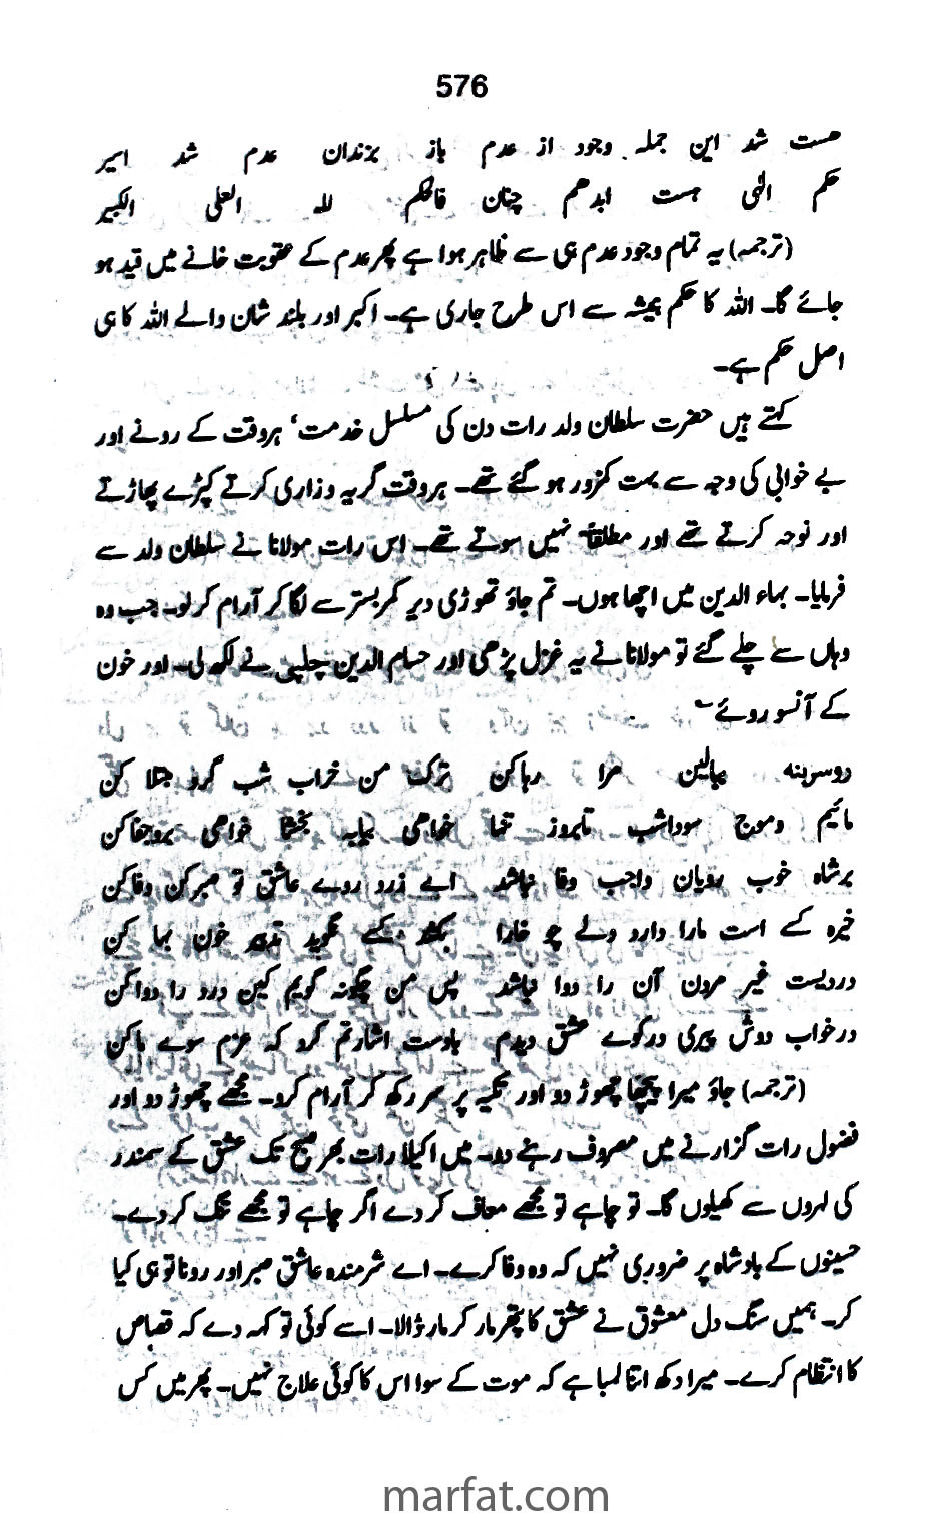 576
ہست شد این جملہ وجود از عدم باز بزندان عدم شد اسیر
حکم الٰہی ہست ابدهم چنان فالحکم للہ العلی الکبیر
(ترجمہ) یہ تمام وجود عدم ہی سے ظاہر ہوا ہے پھر عدم کے عقوبت خانے میں قید ہو
جائے گا۔ اللہ کا حکم ہمیشہ سے اس طرح جاری ہے۔ اکبر اور بلند شان والے اللہ کا ہی
اصل حکم ہے۔
کہتے ہیں حضرت سلطان ولد رات دن کی مسلسل خدمت، ہر وقت کے رونے اور
بے خوابی کی وجہ سے بہت کمزور ہو گئے تھے۔ ہر وقت گریہ و زاری کرتے کپڑے پھاڑتے
اور نوحہ کرتے تھے اور مطلقاً نہیں سوتے تھے۔ اس رات مولانا نے سلطان ولد سے
فرمایا۔ بہاء الدین میں اچھا ہوں۔ تم جاؤ تھوڑی دیر کمر بستر سے لگا کر آرام کر لو۔ جب وہ
وہاں سے چلے گئے تو مولانا نے یہ غزل پڑھی اور حسام الدین چلپی نے لکھ لی۔ اور خون
کے آنسو روئے
روسربنہ ببالین مرا رہا کن ترک من خراب شب گرد مبتلا کن
مائیم و موج سوداشب تابروز تنہا خواہی بیابہ بخشا خواہی برو جفا کن
برشاہ خوب رویان واجب وفا نباشد اے زرد روے عاشق تو صبر کن وفا کن
خیرہ کے است مارا دارد دلے چو خارا بکشد کسے نگوید تدبیر خون بہا کن
دردیست غیر مردن آن را دوا نباشد پس من چگونہ گویم کین درد را دوا کن
در خواب دوش پیری در کوے عشق دیدم بادست اشارتم کرد کہ عزم سوے ما کن
(ترجمہ) جاؤ میرا پیچھا چھوڑ دو اور تکیہ پر سر رکھ کر آرام کرو۔ مجھے چھوڑ دو اور
فضول رات گزارنے میں مصروف رہنے دو۔ میں اکیلا رات بھر صبح تک عشق کے سمندر
کی لہروں سے کھیلوں گا۔ تو چاہے تو مجھے معاف کر دے اگر چاہے تو مجھے تنگ کر دے۔
حسینوں کے بادشاہ پر ضروری نہیں کہ وہ وفا کرے۔ اے شرمندہ عاشق صبر اور رونا تو ہی کیا
کر۔ ہمیں سنگ دل معشوق نے عشق کا پتھر مار کر مار ڈالا۔ اسے کوئی تو کہہ دے کہ قصاص
کا انتظام کرے۔ میرا دکھ اتنا لمبا ہے کہ موت کے سوا اس کا کوئی علاج نہیں۔ پھر میں کس
marfat.com